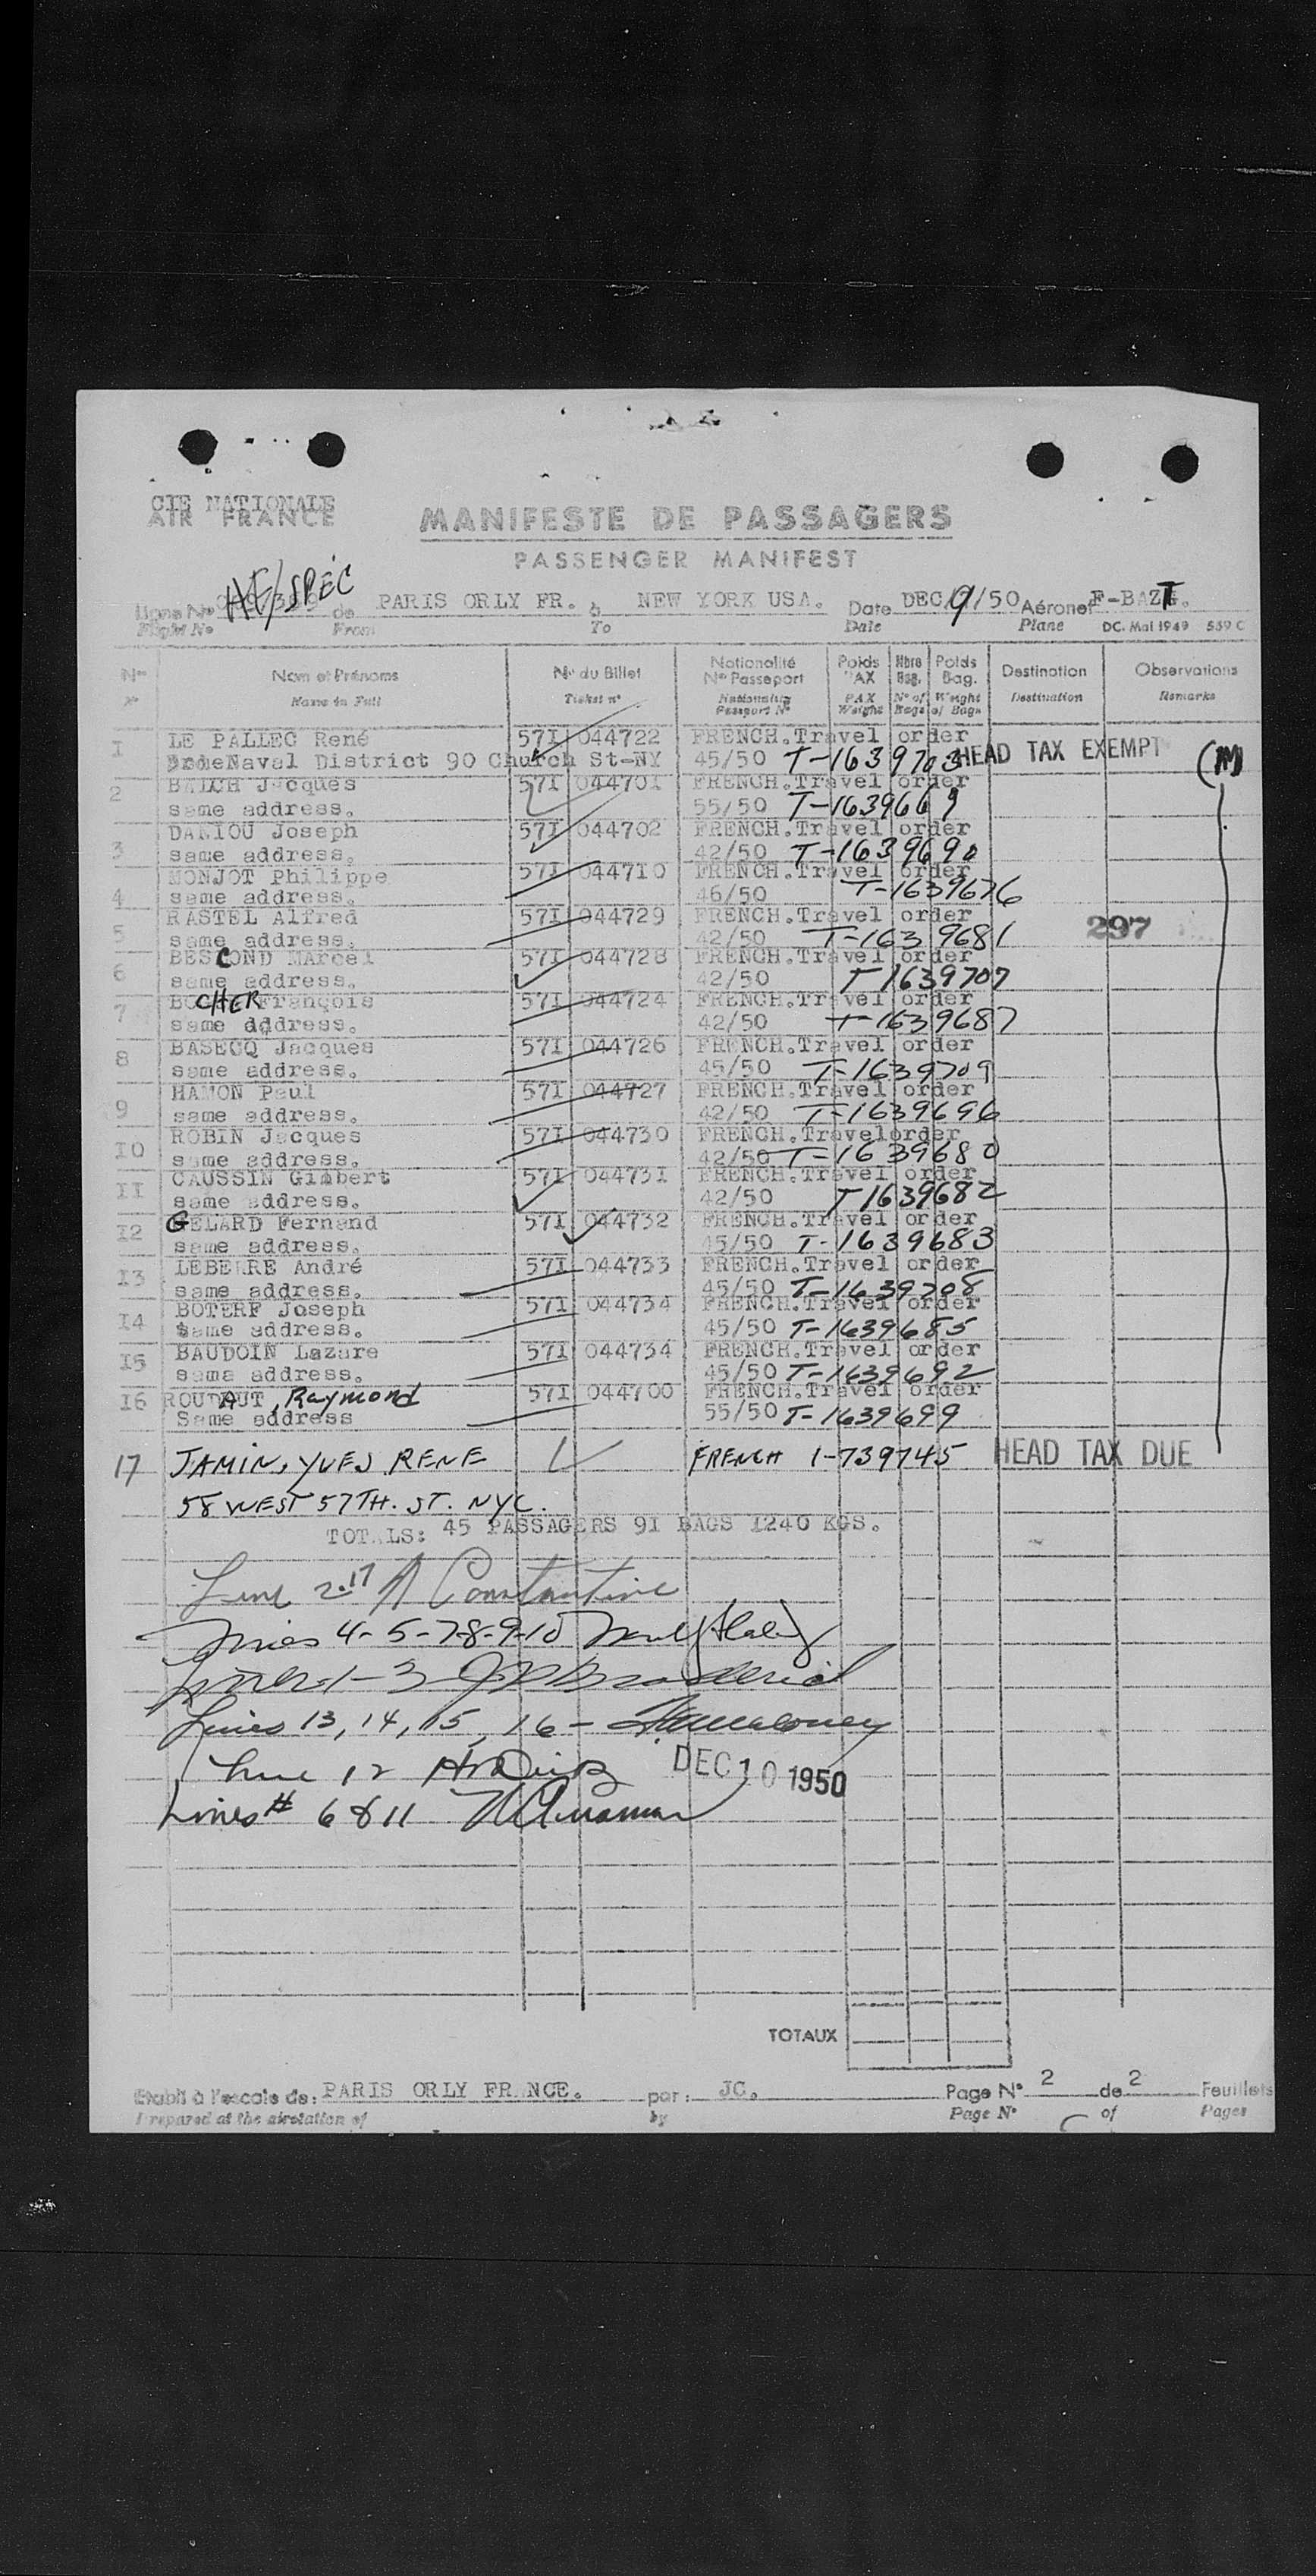 CIE NATIONALE
AIR FRANCE
MANIFESTE DE PASSAGERS
PASSENGER MANIFEST
Ligne No AF/SPEC de PARIS ORLY FR. à NEW YORK USA. Date DEC/9/50 Aéronef F-BAZT.
Flight No From To Date Plane DC. Mai 1949 559 C
Nos Nom et Prénoms No du Billet Nationalité No Passeport Poids PAX Nbre Bag. Poids Bag. Destination Observations
Name in Full Ticket no Nationality Passport No PAX Weight No of Bags Weight of Bags Destination Remarks
1 LE PALLEC René 571 044722 FRENCH.Travel order
Naval District 90 Church St-NY 45/50 T-1639703 HEAD TAX EXEMPT (M)
2 Jacques 571 044701 FRENCH.Travel order
same address. 55/50 T-1639669
3 DANIOU Joseph 571 044702 FRENCH.Travel order
same address. 42/50 T-1639690
4 MONJOT Philippe 571 044710 FRENCH.Travel order
same address. 46/50 T-1639676
5 RASTEL Alfred 571 044729 FRENCH.Travel order
same address. 42/50 T-1639681 297
6 BESCOND Marcel 571 044728 FRENCH.Travel order
same address. 42/50 T 1639707
7 BOCHER François 571 044724 FRENCH.Travel order
same address. 42/50 T-1639687
8 BASECQ Jacques 571 044726 FRENCH.Travel order
same address. 45/50 T-1639709
9 HAMON Paul 571 044727 FRENCH.Travel order
same address. 42/50 T-1639696
10 ROBIN Jacques 571 044730 FRENCH.Travelorder
same address. 42/50 T-1639680
11 CAUSSIN Gimbert 571 044731 FRENCH.Travel order
same address. 42/50 T 1639682
12 GELARD Fernand 571 044732 FRENCH.Travel order
same address. 45/50 T-1639683
13 LEBERRE André 571 044733 FRENCH.Travel order
same address. 45/50 T-1639708
14 BOTERF Joseph 571 044734 FRENCH.Travel order
same address. 45/50 T-1639685
15 BAUDOIN Lazare 571 044734 FRENCH.Travel order
same address. 45/50 T-1639692
16 ROUDAUT, Raymond 571 044700 FRENCH.Travel order
Same address 55/50 T-1639699
17 JAMIN, YVES RENE FRENCH 1-739745 HEAD TAX DUE
58 WEST 57TH. ST. NYC.
TOTALS: 45 PASSAGERS 91 BAGS 1240 KGS.
Line 2-17 A Constantine
Lines 4-5-7-8-9-10
Lines 1-3
Lines 13, 14, 15, 16 -
Line 12
DEC 10 1950
Lines # 6 & 11
TOTAUX
Etabli à l'escale de: PARIS ORLY FRANCE. par: JC. Page No 2 de 2 Feuillets
Prepared at the airstation of by Page No of Pages